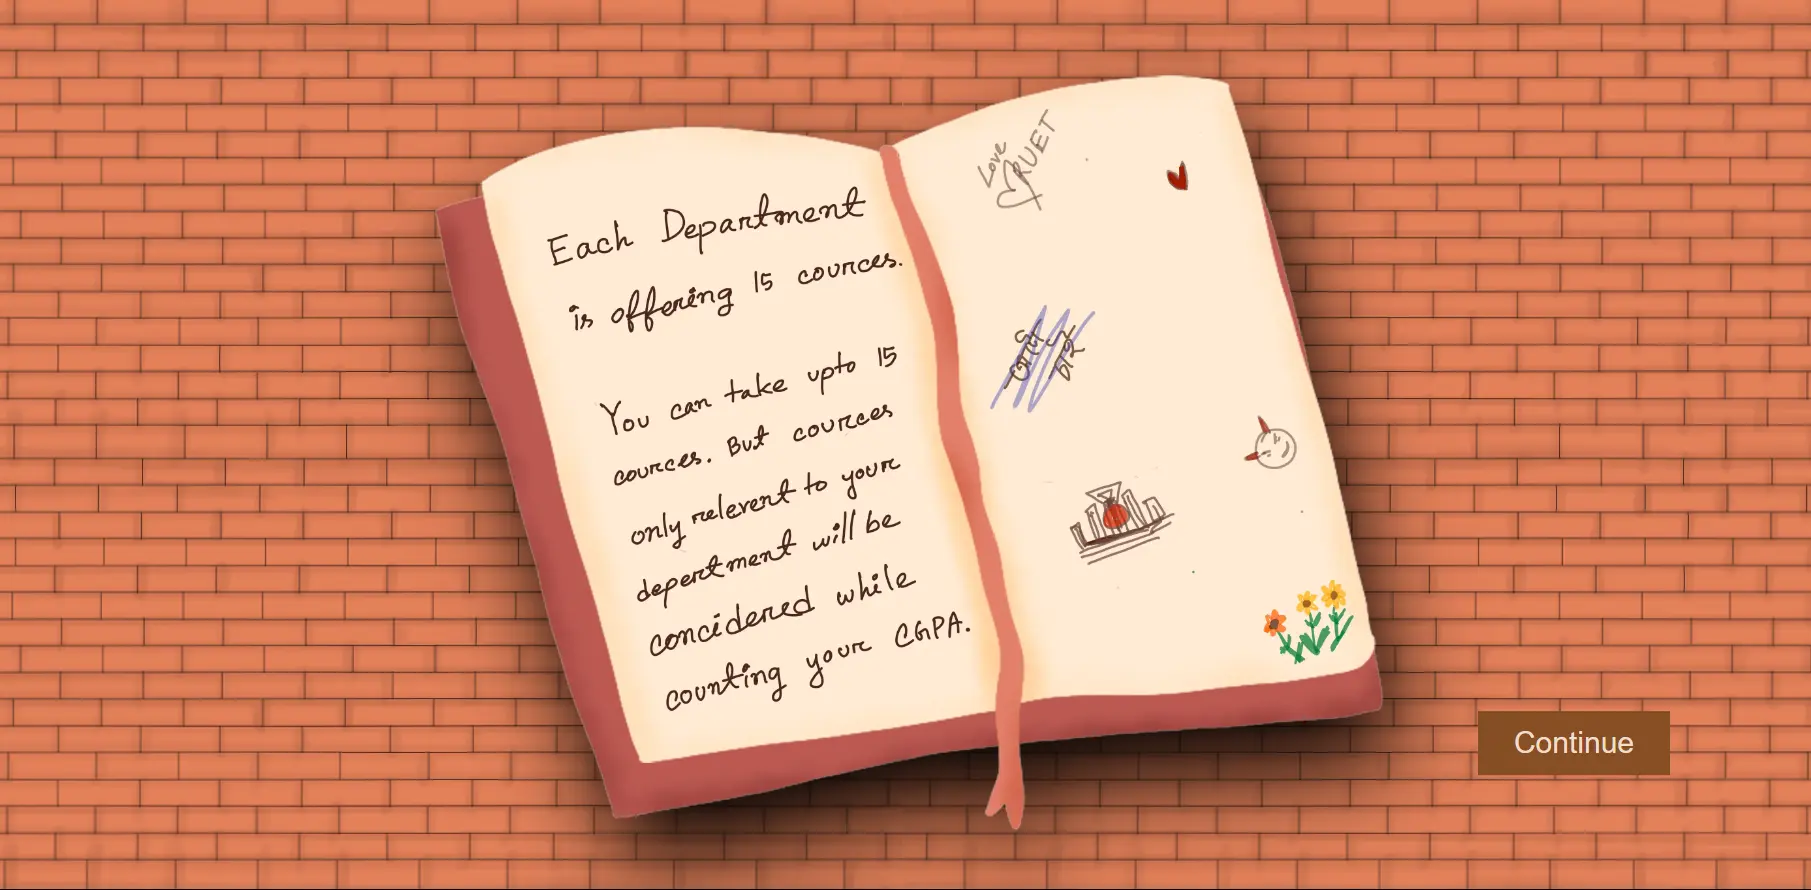 Each Department
is offering 15 cources.
You can take upto 15
cources. But cources
only relevent to your
depertment will be
concidered while
counting your CGPA.
Love
RUET
Continue